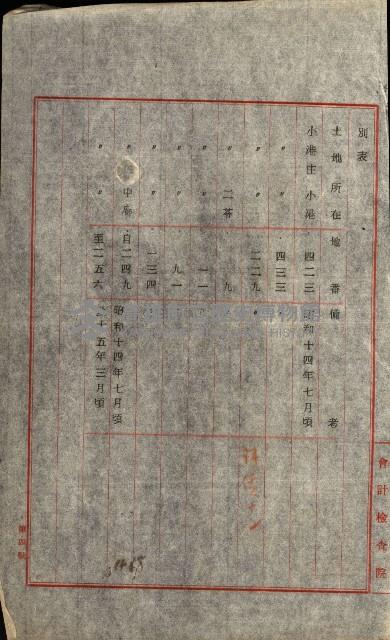 別表
土地所在地 番 備考
小港庄 小港 四二三 昭和十四年七月頃
〃 〃 四三三
〃 〃 二二九 〃
〃 二苓 九
〃 〃 一一
〃 〃 九一
〃 〃 一三四
〃 中廍 自二四九 昭和十四年七月頃
〃 〃 至二五六 十五年三月頃
會計檢查院
第四號